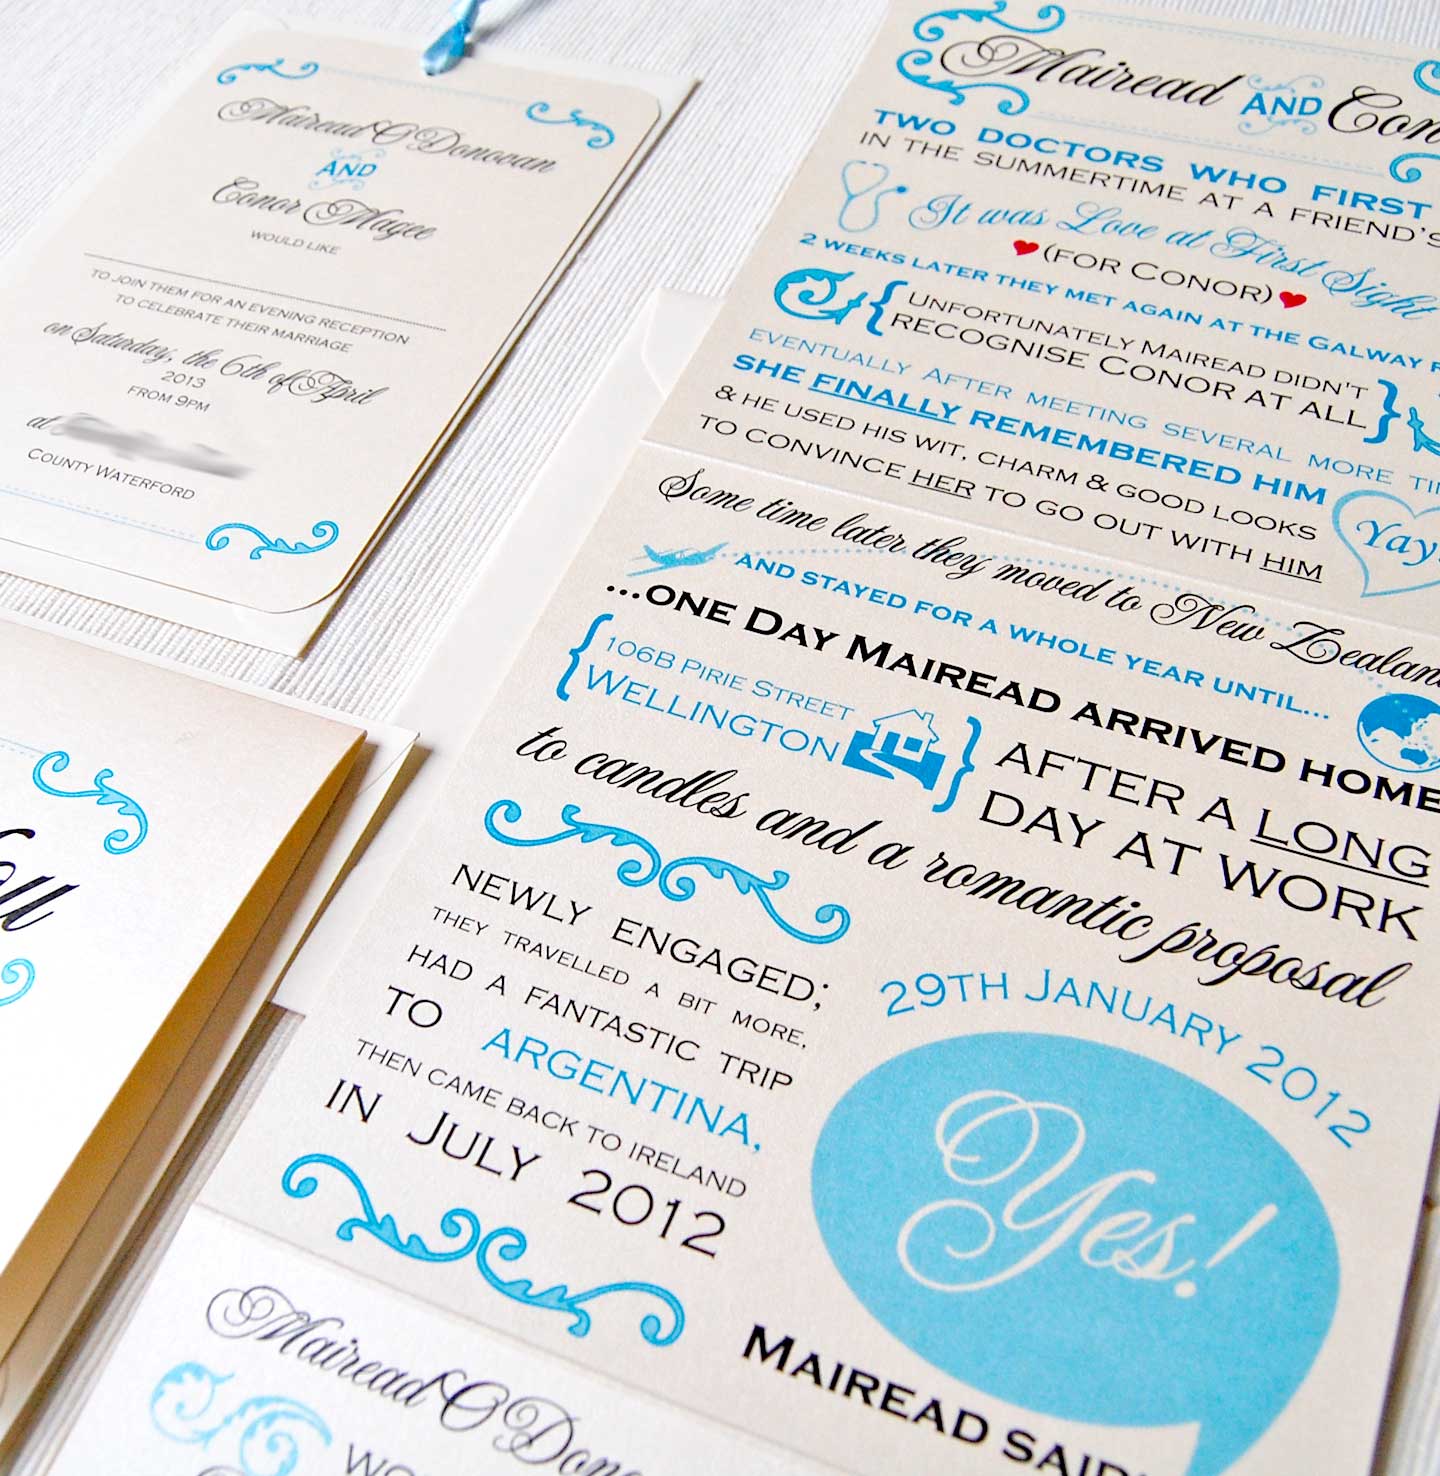 Mairead O'Donovan
AND
Conor Magee
WOULD LIKE
TO JOIN THEM FOR AN EVENING RECEPTION
TO CELEBRATE THEIR MARRIAGE
on Saturday, the 6th of April
2013
FROM 9PM
at
COUNTY WATERFORD
Mairead AND Con
TWO DOCTORS WHO FIRST
IN THE SUMMERTIME AT A FRIEND'S
It was Love at First Sight
(FOR CONOR)
2 WEEKS LATER THEY MET AGAIN AT THE GALWAY R
UNFORTUNATELY MAIREAD DIDN'T
RECOGNISE CONOR AT ALL
EVENTUALLY AFTER MEETING SEVERAL MORE TIM
SHE FINALLY REMEMBERED HIM
& HE USED HIS WIT, CHARM & GOOD LOOKS
TO CONVINCE HER TO GO OUT WITH HIM
Yay!
Some time later they moved to New Zealand
AND STAYED FOR A WHOLE YEAR UNTIL...
...ONE DAY MAIREAD ARRIVED HOME
{106B PIRIE STREET
WELLINGTON}
AFTER A LONG
DAY AT WORK
to candles and a romantic proposal
29TH JANUARY 2012
NEWLY ENGAGED;
THEY TRAVELLED A BIT MORE,
HAD A FANTASTIC TRIP
TO ARGENTINA,
THEN CAME BACK TO IRELAND
IN JULY 2012
Yes!
MAIREAD SAID
Mairead O'Dono
WO
oll